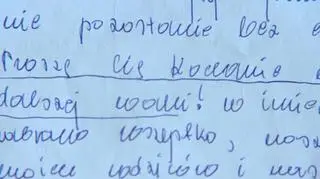 nie pozostanie bez e
Proszę Cię Kochanie o
dalszej walki! w imie
zabrano wszystko, nasz
moich rodziców i nas